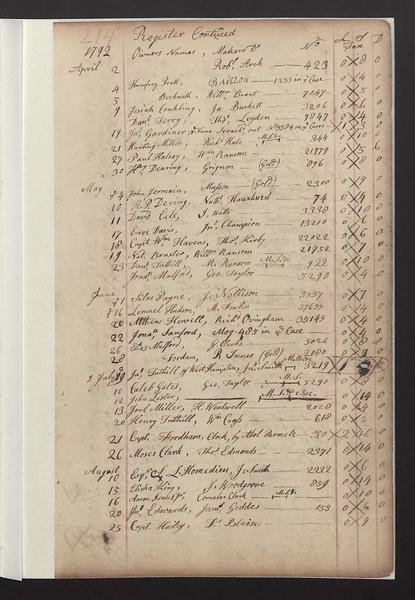 214 Register Continued
1792 Owners Names, Makers Do No £ S D
April 2 Robt. Arch 423 0 8 0
4 Humfrey Pratt, BAILLON 1233 in ye Case 0 4 0
5 Beckwith, Willm Brant 7047 0 5 0
9 Josiah Conkling, Ja Burkett 3206 0 6 0
Danl. Terry, Thos. Leyden 9847 0 4 0
19 Jno. Gardiner, Name out No 3384 in ye Case
21 Hunting Miller, Richd Hale 344 0 10 0
27 Paul Halsey, Wm Ransom 21979 0 5 6
30 Hy Dearing, Grignon (Gold) 896 0 8 0
May 4 John Jermain, Masson (Gold) 2300 0 7 0
10 H. P. Dering, Nathl. Hawxhurst 74 0 4 0
11 David Eels, J. Watts 3338 0 10 0
17 Enos Davis, Jno. Champion 13210 0 6 0
18 Capt Wm Havens, Thos. Kirby 22022 0 9 0
19 Nat. Brewster, Willm Ransom 21752 0 7 0
23 Danl. Tuthill, M. Ransom 922 0 10 0
Jonan. Mulford, Geo. Taylor 5290 0 4 0
June 1 Silas Payne, J. Nellison 3537 0 7 0
16 Lemuel Hudson, M. Fowler 37653 0 4 0
20 Matthew Howell, Richd Ovingham 35145 0 4 0
22 Jonan. Sanford, May 485 in ye Case 0 4 0
26 Elias Mulford, G. Clarke 5026 0 8 0
28 Fordham, R. Innes (Gold) 2080 0 9 0
3 July Jno. Tuthill of West Hampton, Jno. Smith 3219
10 Caleb Gates, Geo. Taylor 5290 0 4 0
12 John Lester, 0 14 0
13 Joel Miller, H. Wentwell 2028 0 4 0
20 Henry Tuthill, Wm Cross 618 0 5 0
21 Captn. Fordham, Clock, by Abel Parmele 30 2 16 0
26 Moses Clark, Thos Edmonds 2391 0 14 0
August 10 Ezra L'Homedieu, J. Smith 2222 0 6 0
15 Elisha King, J. Woodgrove 859 0 14 0
16 Cornelas Clark 0 10 0
20 Jno. Edwards, Jams. Geddes 153 0 6 0
25 Capt. Hailey, 0 8 0